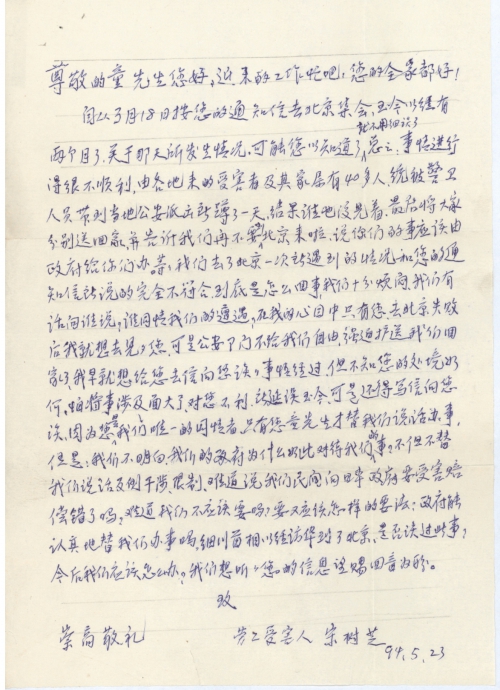 尊敬的童先生您好，近来的工作忙吧，您的全家都好！
自从3月18日按您的通知信去北京集会，至今以经有
就不用细谈了
两个月了，关于那天所发生情况，可能您以知道了，总之，事情进行
得很不顺利，由各地来的受害者及其家属有40多人，统被警卫
人员带到当地公安派出所蹲了一天，结果谁也没先着，最后将大家
分别送回家，并告诉我们再不要到北京来啦，说你们的事应该由
政府给你们办，我们去了北京一次所遇到的情况和您的通
知信所说的完全不符合，到底是怎么回事，我们十分烦闷，我们有
话向谁说，谁同情我们的遭遇，在我的心目中只有您，去北京失败
后我就想去见您，可是公安部门不给我们自由，强迫护送我们回
家，我早就想给您去信向您谈事情经过，但不知您的处境如
何，怕将事涉及面大了对您不利，所延误至今，可是还得写信向您
谈，因为您是我们唯一的同情者，只有您童先生才替我们说话办事，
但是，我们不明白，我们的政府为什么如此对待我们的事，不但不替
我们说话反倒干涉限制，难道说我们民间向日本政府要受害赔
偿错了吗，难道我们不应该要吗？要又应该怎样的要法？政府能
认真地替我们办事吗，细川首相以经访华到了北京，是否谈过此事？
今后我们应该怎么办？我们想听您的信息望赐回音为盼。
致
崇高敬礼
劳工受害人 宋树芝
94.5.23